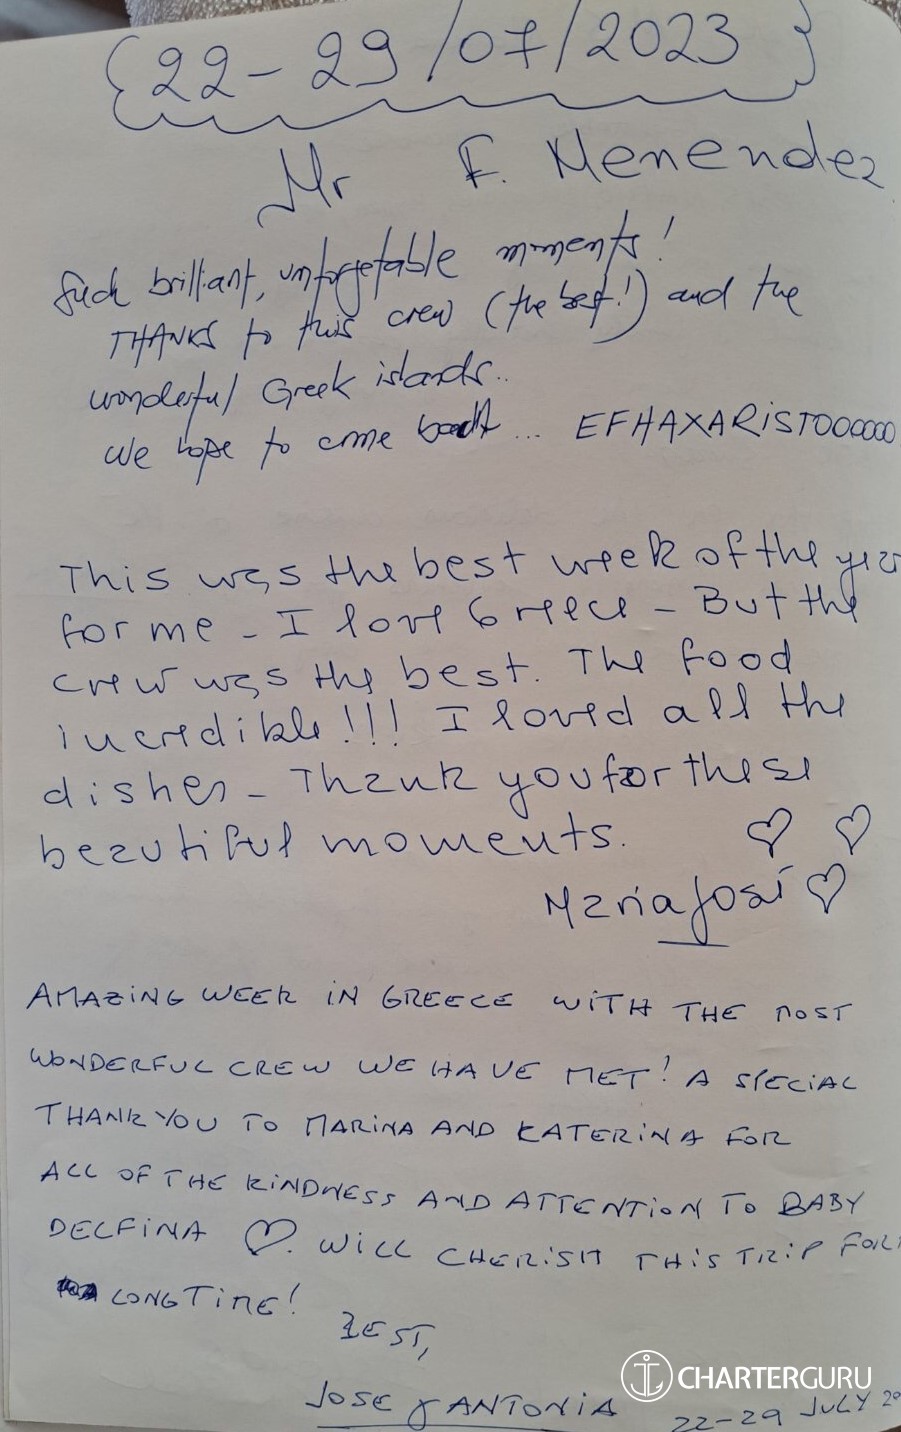 {22-29/07/2023}
Mr F. Menendez
Such brilliant, unforgetable moments!
THANKS to this crew (the best!) and the
wonderful Greek islands..
We hope to come back ... EFHAXARISTOOOOOO
This was the best week of the year
for me - I love Greece - But the
crew was the best. The food
incredible!!! I loved all the
dishes - Thank you for these
beautiful moments.
Maria José
AMAZING WEEK IN GREECE WITH THE MOST
WONDERFUL CREW WE HAVE MET! A SPECIAL
THANK YOU TO MARINA AND KATERINA FOR
ALL OF THE KINDNESS AND ATTENTION TO BABY
DELFINA ♡. WILL CHERISH THIS TRIP FOR
LONG TIME!
BEST,
JOSE y ANTONIA 22-29 JULY 20
CHARTERGURU